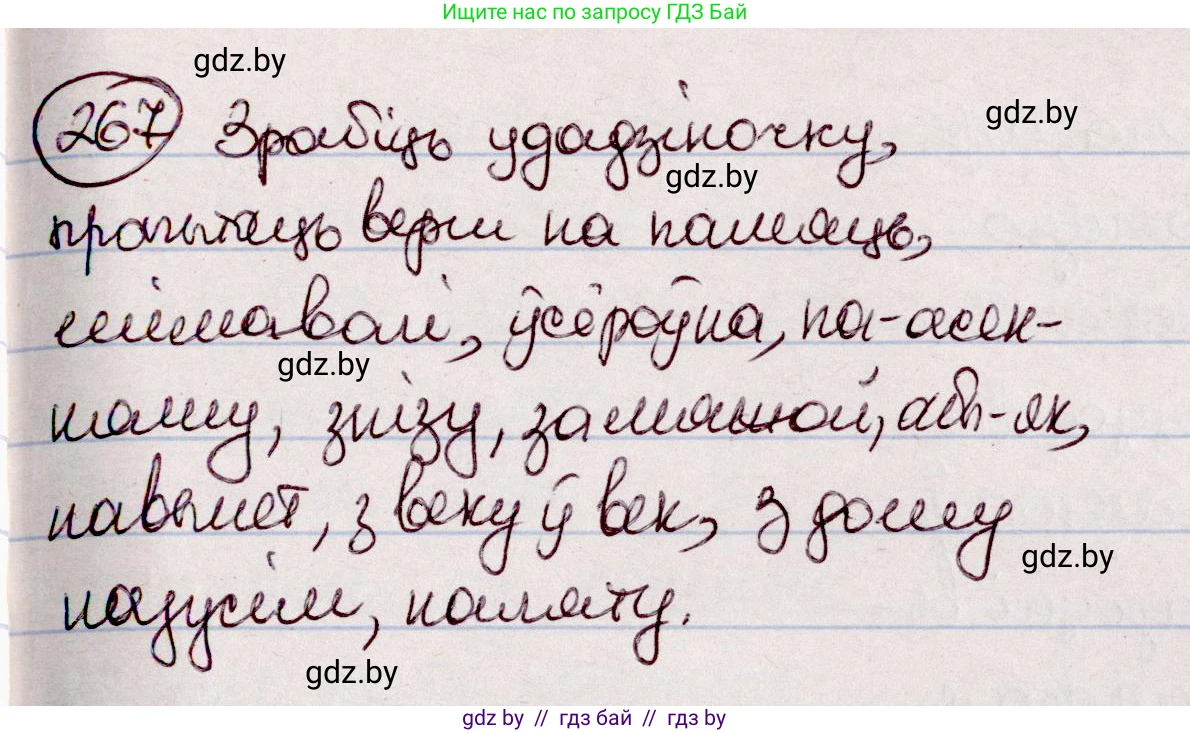 Ищите нас по запросу ГДЗ Бай
gdz.by
267 Зрабіць удадзіночку,
gdz.by
gdz.by
прачытаць верш на памяць,
мімаволі, ўсёроўна, па-асен-
gdz.by
няму, знізу, за мяжой, абы-як,
навылет, з веку ў век, з дому
gdz.by
назусім, памяту.
gdz.by
gdz by // гдз бай // гдз by